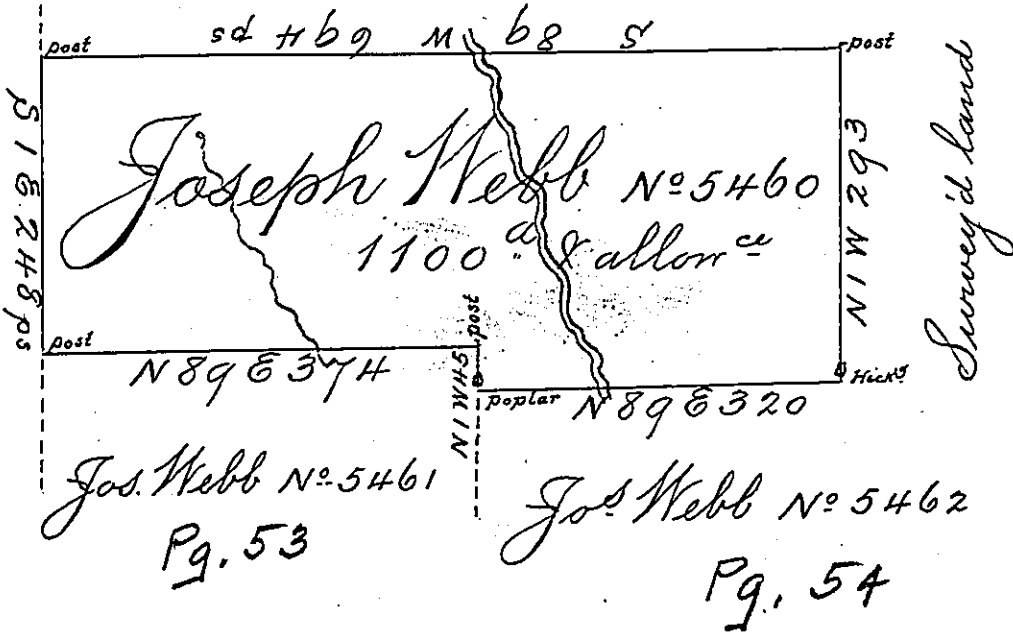 post S 89 W 694 ps post
S 1 E 248 ps
Joseph Webb Nº 5460
1100 a. & allowce
N 1 W 293
Survey'd land
post
N 89 E 374
N 1 W 45
post
poplar
N 89 E 320
Hicky
Jos. Webb Nº 5461
Pg. 53
Jos Webb Nº 5462
Pg. 54